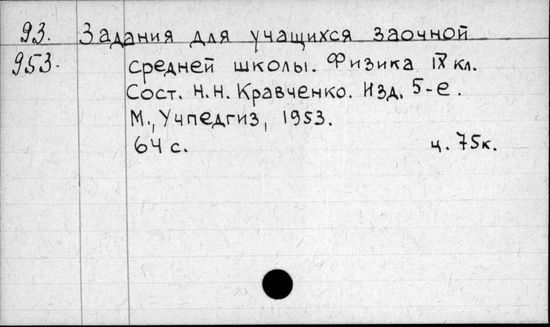 93. Задания для учащихся заочной
953. средней школы. Физика IX кл.
Сост. Н.Н. Кравченко. Изд. 5-е.
М., Учпедгиз, 1953.
64 с. ц. 75к.